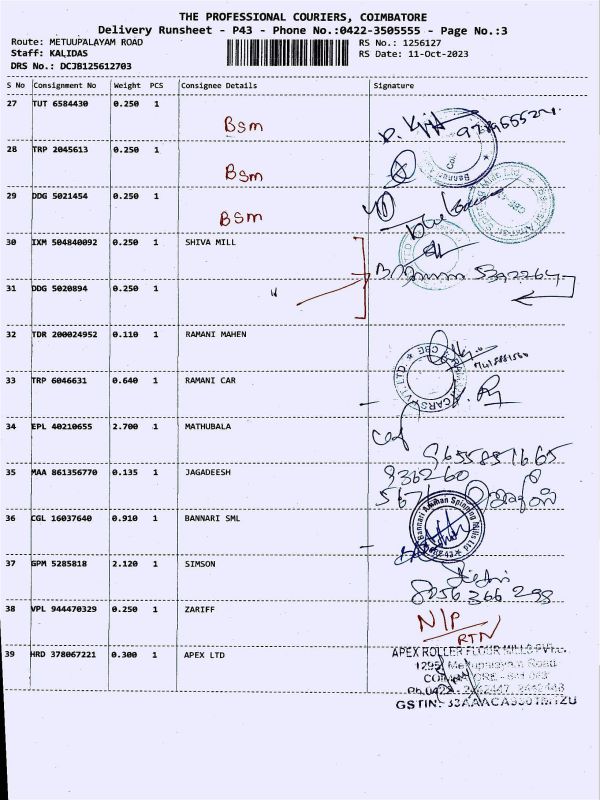 THE PROFESSIONAL COURIERS, COIMBATORE
Delivery Runsheet - P43 - Phone No.:0422-3505555 - Page No.:3
Route: METUUPALAYAM ROAD
RS No.: 1256127
Staff: KALIDAS
RS Date: 11-Oct-2023
DRS No.: DCJB125612703
S No Consignment No Weight PCS Consignee Details Signature
27 TUT 6584430 0.250 1
BSM
28 TRP 2045613 0.250 1
BSM
29 DDG 5021454 0.250 1
BSM
30 IXM 504840092 0.250 1 SHIVA MILL
31 DDG 5020894 0.250 1 "
32 TDR 200024952 0.110 1 RAMANI MAHEN
33 TRP 6046631 0.640 1 RAMANI CAR
34 EPL 40210655 2.700 1 MATHUBALA
9655851665
35 MAA 861356770 0.135 1 JAGADEESH
936260
36 CGL 16037640 0.910 1 BANNARI SML
Bannari Amman Spinning Mills
37 GPM 5285818 2.120 1 SIMSON
8056366298
38 VPL 944470329 0.250 1 ZARIFF
N/P
RTN
39 HRD 378067221 0.300 1 APEX LTD
APEX ROLLER FLOUR MILLS PVT.
1295, Mettupalayam Road
GSTIN: